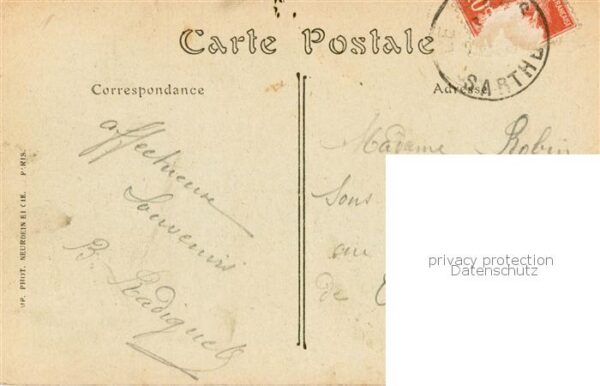 Carte Postale
Correspondance
Adresse
SARTHE
affectueux
Souvenirs
B. Radiguet
Madame Robin
Sous
au
de
privacy protection
Datenschutz
IMP. PHOT. NEURDEIN ET CIE. PARIS.